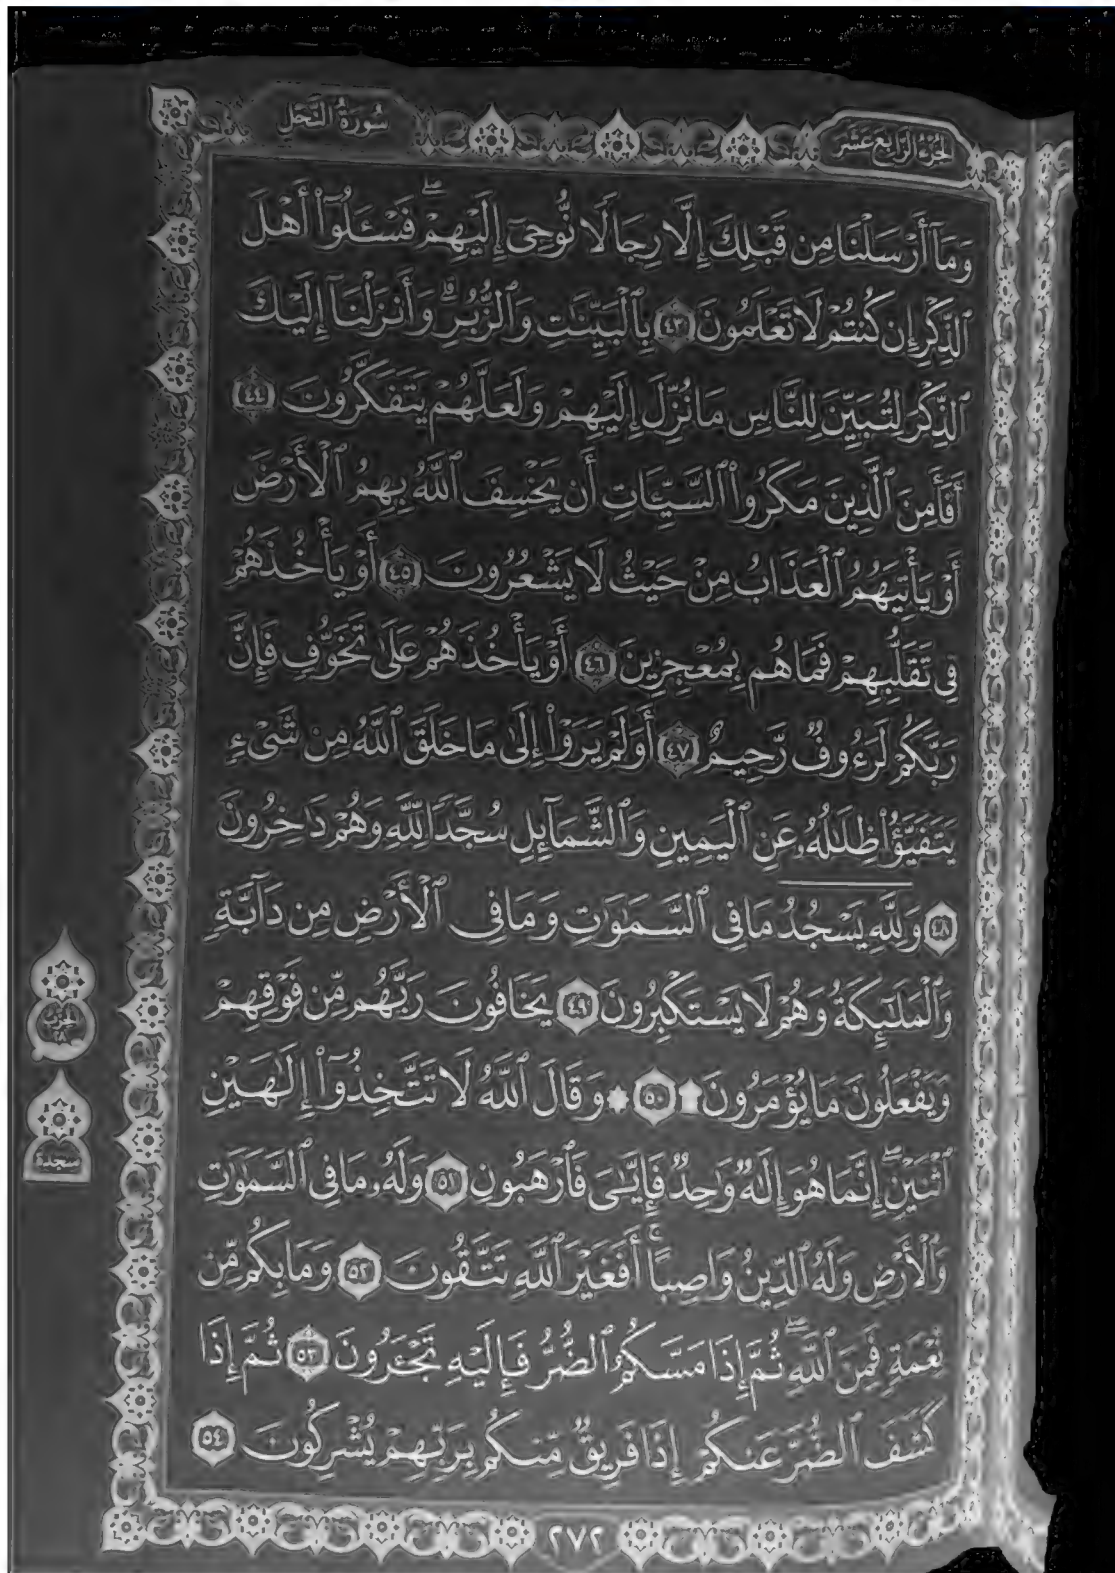 الجزء الرابع عشر
سُورَةُ النَّحْلِ
وَمَآ أَرْسَلْنَا مِن قَبْلِكَ إِلَّا رِجَالًا نُّوحِىٓ إِلَيْهِمْ ۖ فَسْـَٔلُوٓا۟ أَهْلَ
ٱلذِّكْرِ إِن كُنتُمْ لَا تَعْلَمُونَ ٤٣ بِٱلْبَيِّنَـٰتِ وَٱلزُّبُرِ ۗ وَأَنزَلْنَآ إِلَيْكَ
ٱلذِّكْرَ لِتُبَيِّنَ لِلنَّاسِ مَا نُزِّلَ إِلَيْهِمْ وَلَعَلَّهُمْ يَتَفَكَّرُونَ ٤٤
أَفَأَمِنَ ٱلَّذِينَ مَكَرُوا۟ ٱلسَّيِّـَٔاتِ أَن يَخْسِفَ ٱللَّهُ بِهِمُ ٱلْأَرْضَ
أَوْ يَأْتِيَهُمُ ٱلْعَذَابُ مِنْ حَيْثُ لَا يَشْعُرُونَ ٤٥ أَوْ يَأْخُذَهُمْ
فِى تَقَلُّبِهِمْ فَمَا هُم بِمُعْجِزِينَ ٤٦ أَوْ يَأْخُذَهُمْ عَلَىٰ تَخَوُّفٍ فَإِنَّ
رَبَّكُمْ لَرَءُوفٌ رَّحِيمٌ ٤٧ أَوَلَمْ يَرَوْا۟ إِلَىٰ مَا خَلَقَ ٱللَّهُ مِن شَىْءٍ
يَتَفَيَّؤُا۟ ظِلَـٰلُهُۥ عَنِ ٱلْيَمِينِ وَٱلشَّمَآئِلِ سُجَّدًا لِّلَّهِ وَهُمْ دَٰخِرُونَ
٤٨ وَلِلَّهِ يَسْجُدُ مَا فِى ٱلسَّمَـٰوَٰتِ وَمَا فِى ٱلْأَرْضِ مِن دَآبَّةٍ
وَٱلْمَلَـٰٓئِكَةُ وَهُمْ لَا يَسْتَكْبِرُونَ ٤٩ يَخَافُونَ رَبَّهُم مِّن فَوْقِهِمْ
وَيَفْعَلُونَ مَا يُؤْمَرُونَ ۩ ٥٠ ۞ وَقَالَ ٱللَّهُ لَا تَتَّخِذُوٓا۟ إِلَـٰهَيْنِ
ٱثْنَيْنِ ۖ إِنَّمَا هُوَ إِلَـٰهٌ وَٰحِدٌ ۖ فَإِيَّـٰىَ فَٱرْهَبُونِ ٥١ وَلَهُۥ مَا فِى ٱلسَّمَـٰوَٰتِ
وَٱلْأَرْضِ وَلَهُ ٱلدِّينُ وَاصِبًا ۚ أَفَغَيْرَ ٱللَّهِ تَتَّقُونَ ٥٢ وَمَا بِكُم مِّن
نِّعْمَةٍ فَمِنَ ٱللَّهِ ۖ ثُمَّ إِذَا مَسَّكُمُ ٱلضُّرُّ فَإِلَيْهِ تَجْـَٔرُونَ ٥٣ ثُمَّ إِذَا
كَشَفَ ٱلضُّرَّ عَنكُمْ إِذَا فَرِيقٌ مِّنكُم بِرَبِّهِمْ يُشْرِكُونَ ٥٤
سجدة
٢٧٢